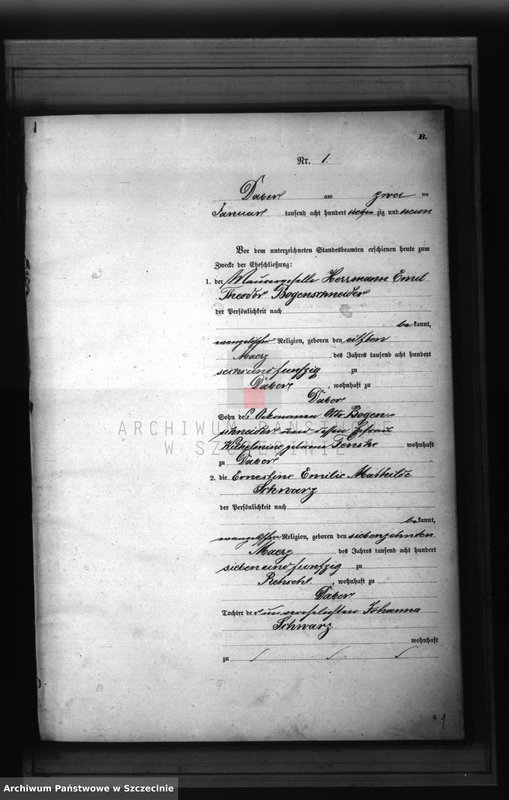 B.
Nr. 1
Daber am zwei ten
Januar tausend acht hundert siebenzig und
Vor dem unterzeichneten Standesbeamten erschienen heute zum
Zwecke der Eheschließung:
1. der Maurergeselle Herrmann Emil
Theodor Bogenschneider
der Persönlichkeit nach
be kannt,
evangelischer Religion, geboren den elften
Maerz des Jahres tausend acht hundert
sechs und funfzig zu
Daber, wohnhaft zu
Daber
Sohn des Ackermann Otto Bogen-
schneider und dessen Ehefrau
Wilhelmine geborne wohnhaft
zu Daber
2. die Ernestine Emilie Mathilde
Schwarz
der Persönlichkeit nach
be kannt,
evangelischer Religion, geboren den siebenzehnten
Maerz des Jahres tausend acht hundert
sieben und funfzig zu
, wohnhaft zu
Daber
Tochter der unverehelichten Johanna
Schwarz
wohnhaft
zu
ARCHIWUM PAŃSTWOWE
W SZCZECINIE
1
Archiwum Państwowe w Szczecinie